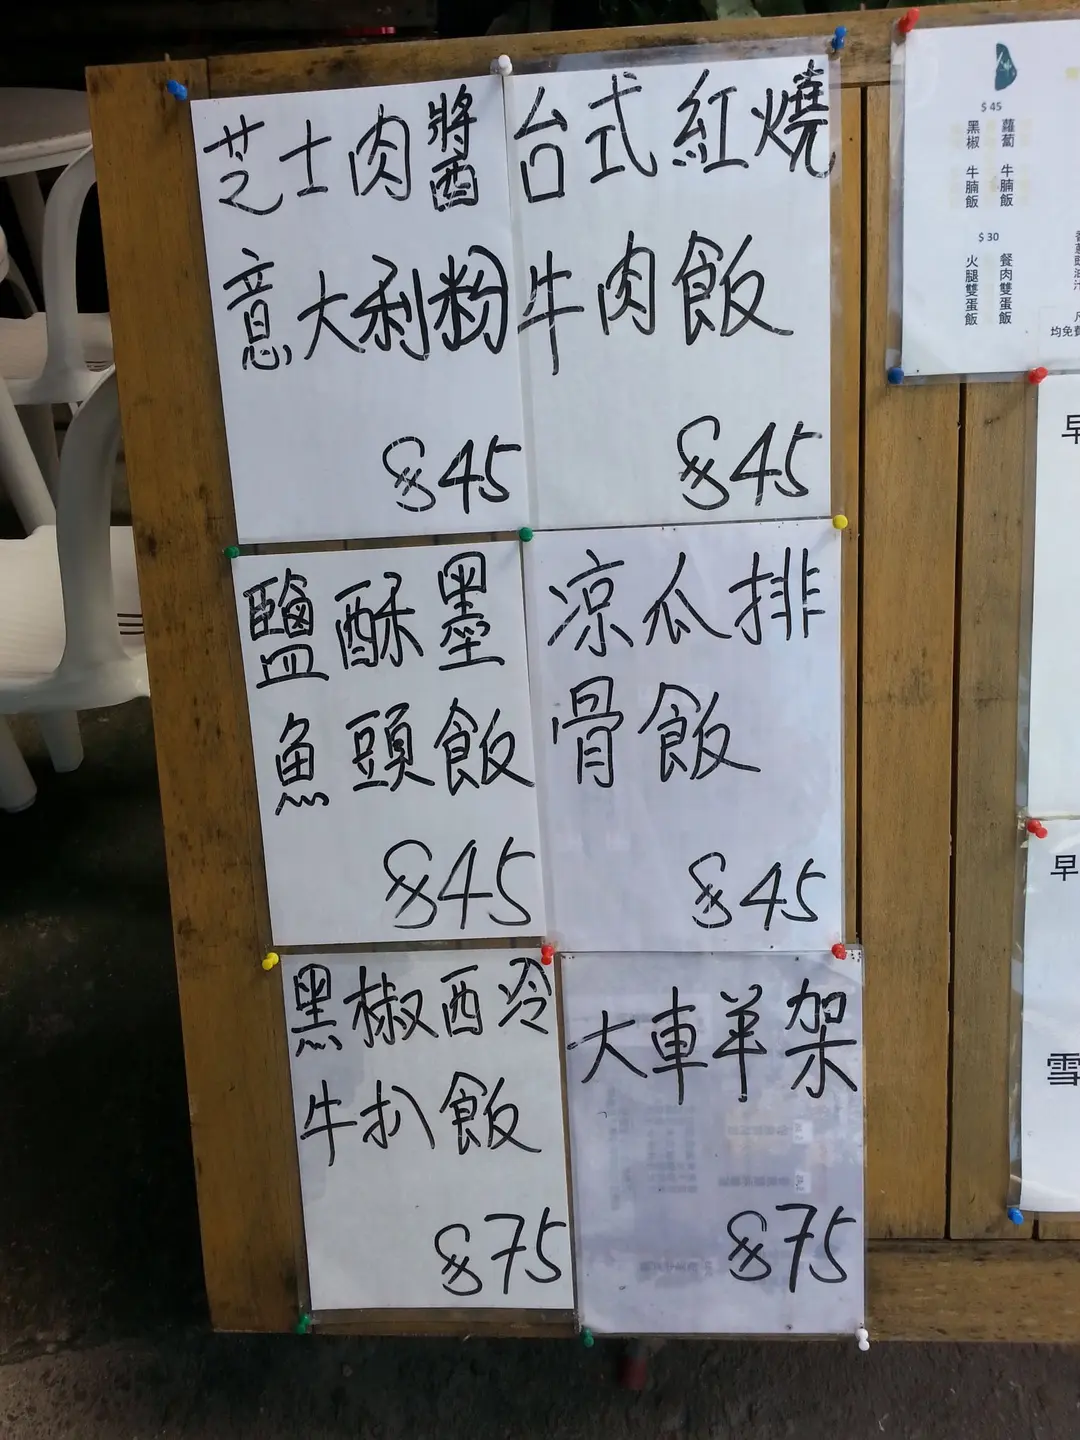 芝士肉醬
意大利粉
$45
台式紅燒
牛肉飯
$45
鹽酥墨
魚頭飯
$45
凉瓜排
骨飯
$45
黑椒西冷
牛扒飯
$75
大車羊架
$75
$45
蘿蔔牛腩飯
黑椒牛腩飯
$30
餐肉雙蛋飯
火腿雙蛋飯
均免費
早
早
雪